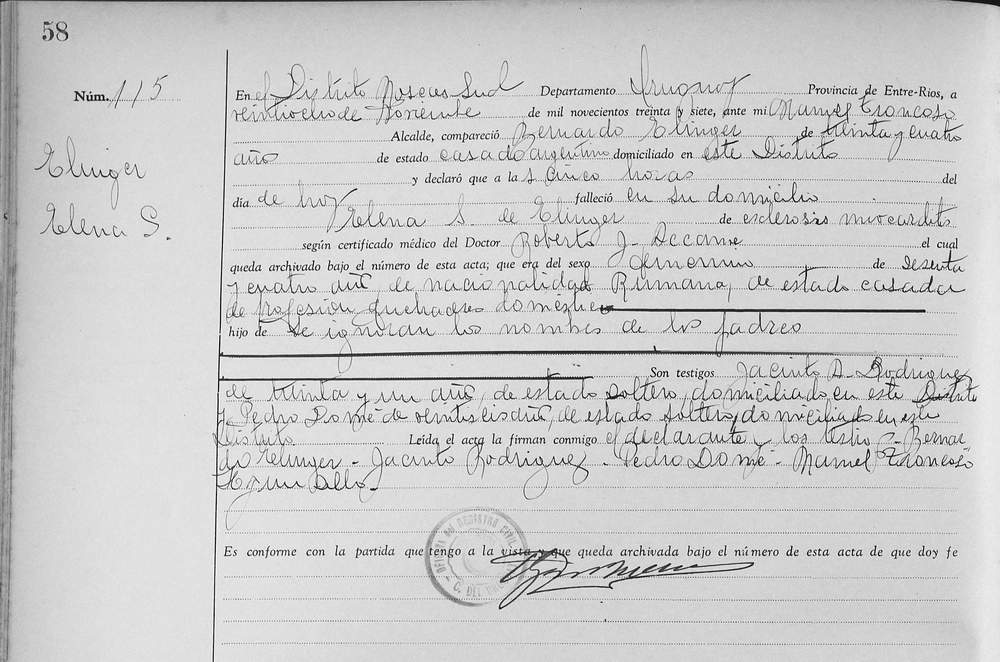 58
Núm. 115
Elinger
Elena S.
En el Distrito Moscas Sud Departamento Uruguay Provincia de Entre-Ríos, a
veintiocho de de mil novecientos treinta y siete, ante mi Manuel Troncoso
Alcalde, compareció Bernardo Elinger de treinta y cuatro
años de estado casado argentino domiciliado en este Distrito
y declaró que a las cinco horas del
día de hoy falleció en su domicilio
Elena S. de Elinger de esclerosis miocarditis
según certificado médico del Doctor Roberto J. el cual
queda archivado bajo el número de esta acta; que era del sexo femenino de sesenta
y cuatro años, de nacionalidad Rumana, de estado casada
de profesión quehaceres domésticos
hijo de se ignoran los nombres de los padres
Son testigos Jacinto A. Rodriguez
de treinta y un años, de estado soltero, domiciliado en este Distrito
y Pedro Domé de veintiseis años, de estado soltero, domiciliado en este
Distrito Leída el acta la firman conmigo el declarante y los testigos - Bernar
do Elinger - Jacinto Rodriguez - Pedro Domé - Manuel Troncoso
Hay un sello -
Es conforme con la partida que tengo a la vista y que queda archivada bajo el número de esta acta de que doy fe